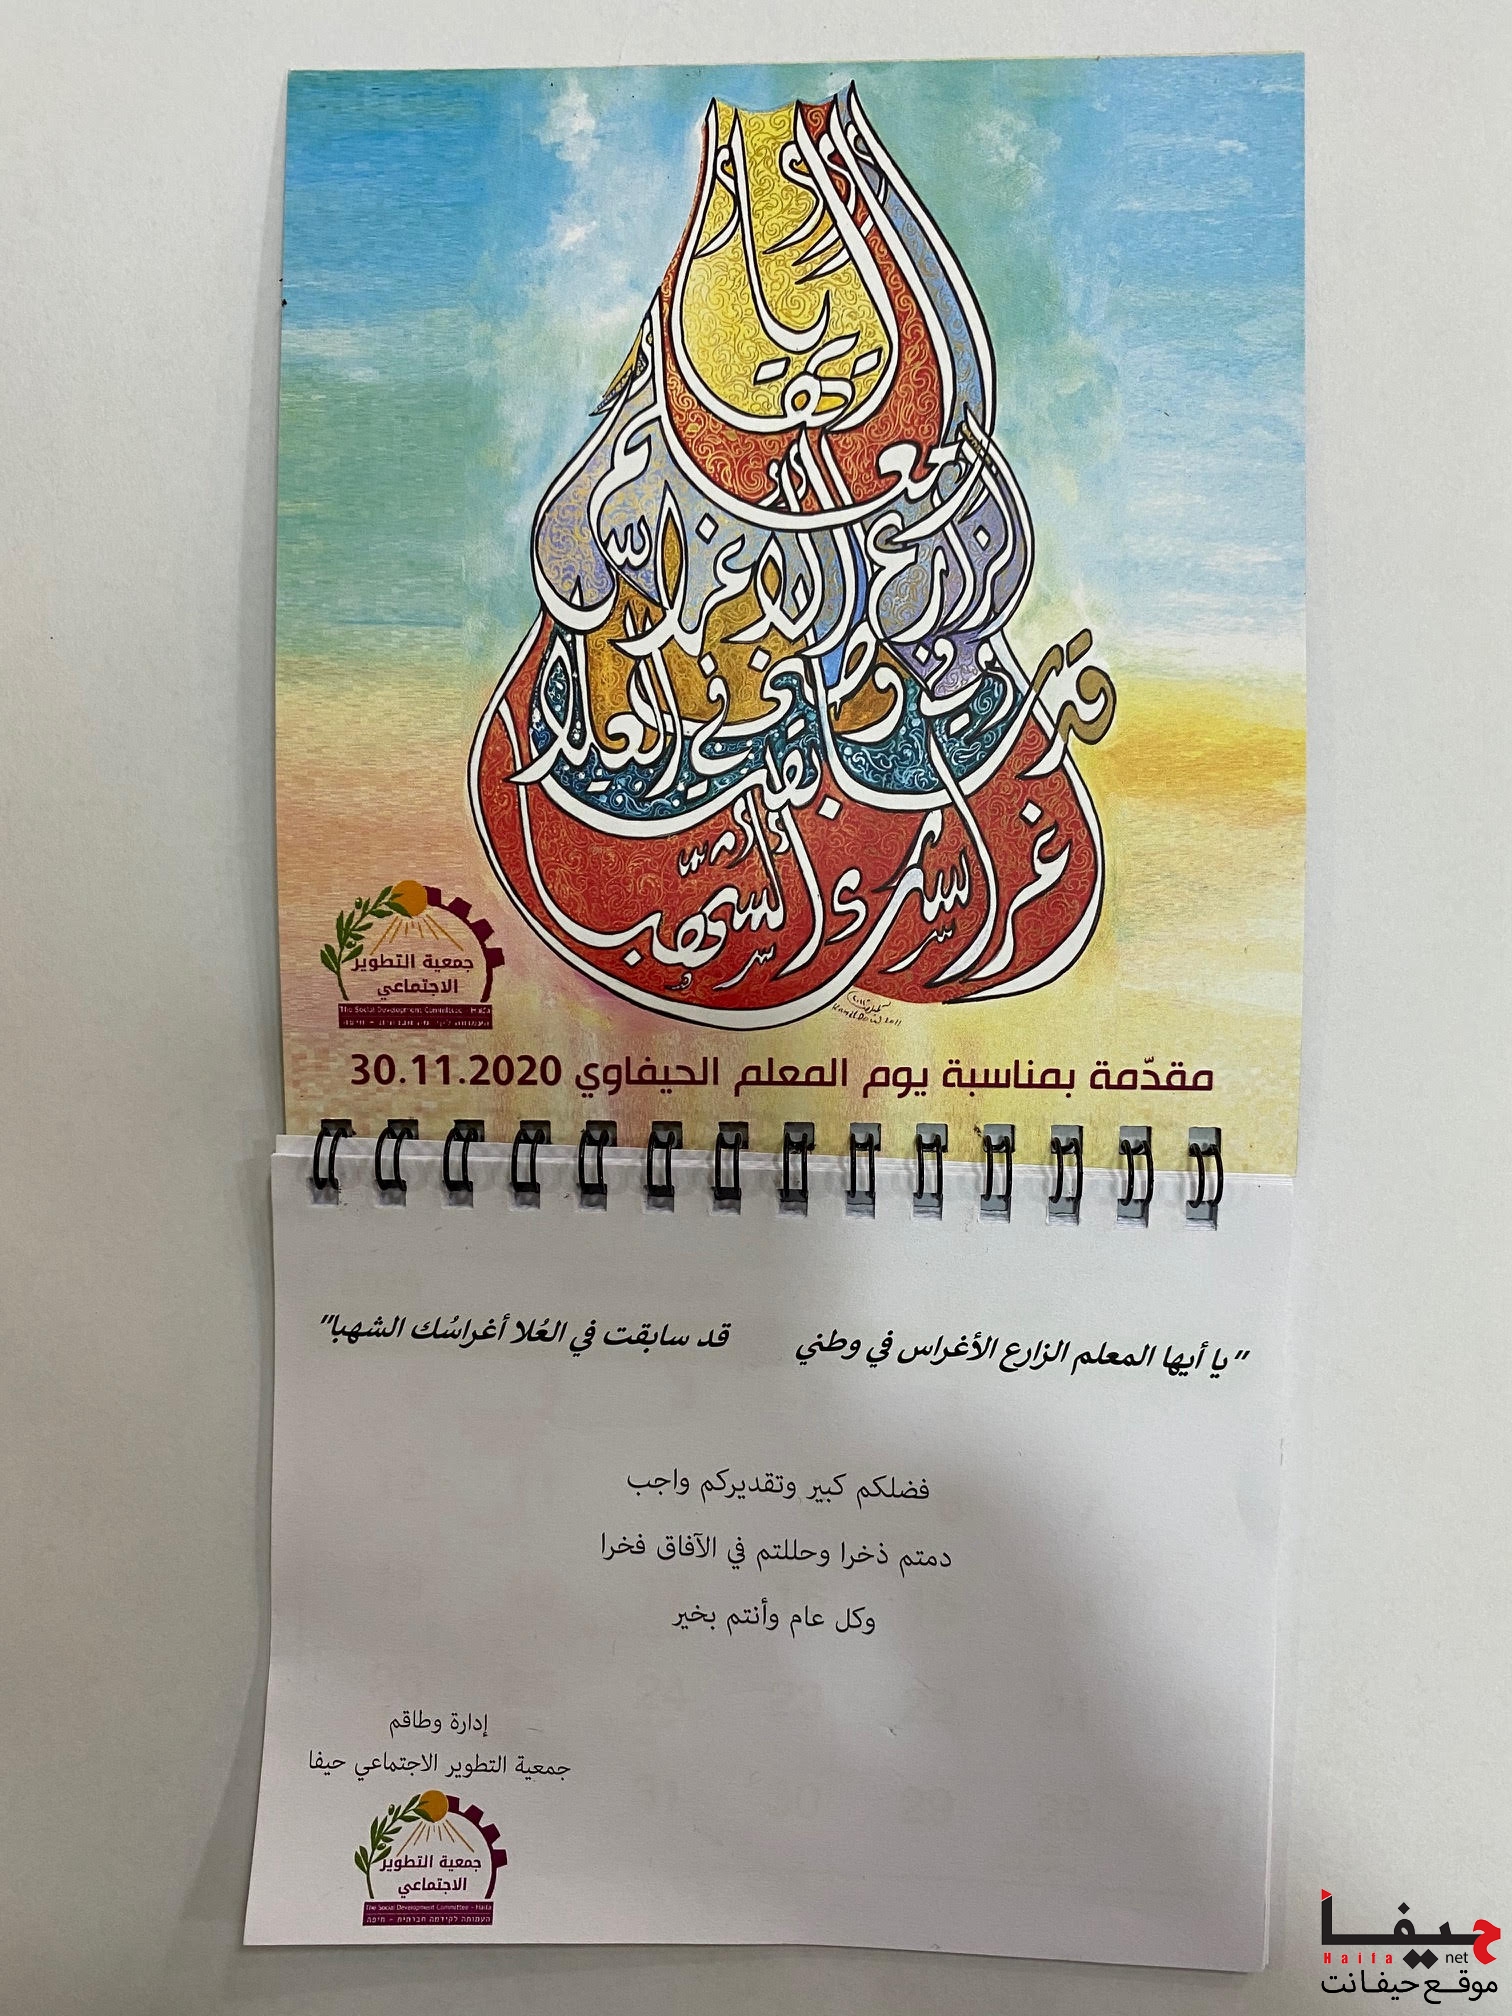 يا أيها المعلم
الزارع الأغراس
في وطني
قد سابقت في العلا
أغراسك الشهبا
Kamil Daw 2011
جمعية التطوير
الاجتماعي
The Social Development Committee - Haifa
העמותה לקידמה חברתית - חיפה
مقدّمة بمناسبة يوم المعلم الحيفاوي 30.11.2020
"يا أيها المعلم الزارع الأغراس في وطني قد سابقت في العُلا أغراسُك الشهبا"
فضلكم كبير وتقديركم واجب
دمتم ذخرا وحللتم في الآفاق فخرا
وكل عام وأنتم بخير
إدارة وطاقم
جمعية التطوير الاجتماعي حيفا
جمعية التطوير
الاجتماعي
The Social Development Committee - Haifa
העמותה לקידמה חברתית - חיפה
حيفا
Haifa net
موقع حيفا نت